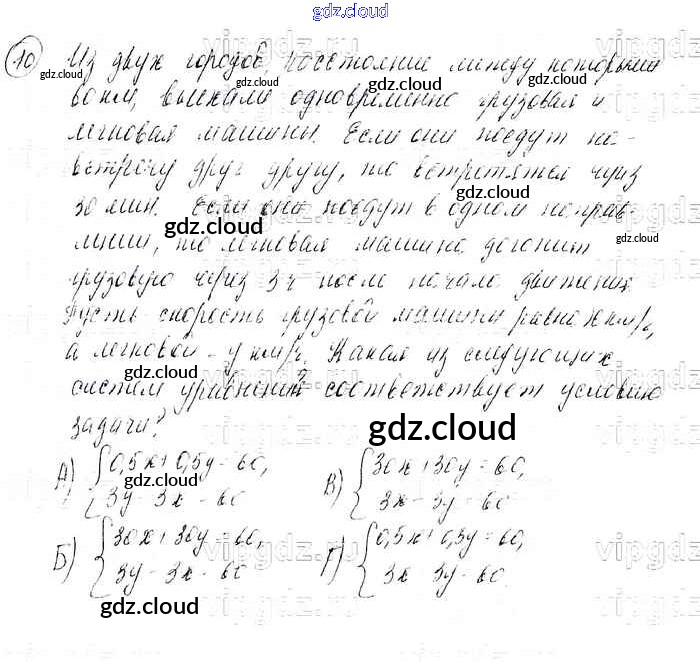 gdz.cloud
10 Из двух городов, расстояние между которыми
60 км, выехали одновременно грузовая и
легковая машины. Если они поедут на-
встречу друг другу, то встретятся через
30 мин. Если они поедут в одном направ-
лении, то легковая машина догонит
грузовую через 3 ч после начала движения.
Пусть скорость грузовой машины равна x км/ч,
а легковой - y км/ч. Какая из следующих
систем уравнений соответствует условию
задачи?
А) { 0,5x + 0,5y = 60,
3y - 3x = 60
В) { 30x + 30y = 60,
3x - 3y = 60
Б) { 30x + 30y = 60,
3y - 3x = 60
Г) { 0,5x + 0,5y = 60,
3x - 3y = 60.
gdz.cloud